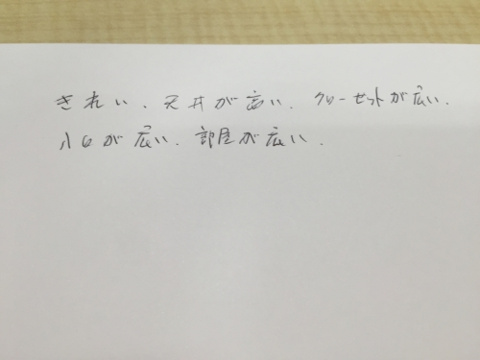 きれい、天井が高い、クローゼットが広い、
入口が広い、部屋が広い、